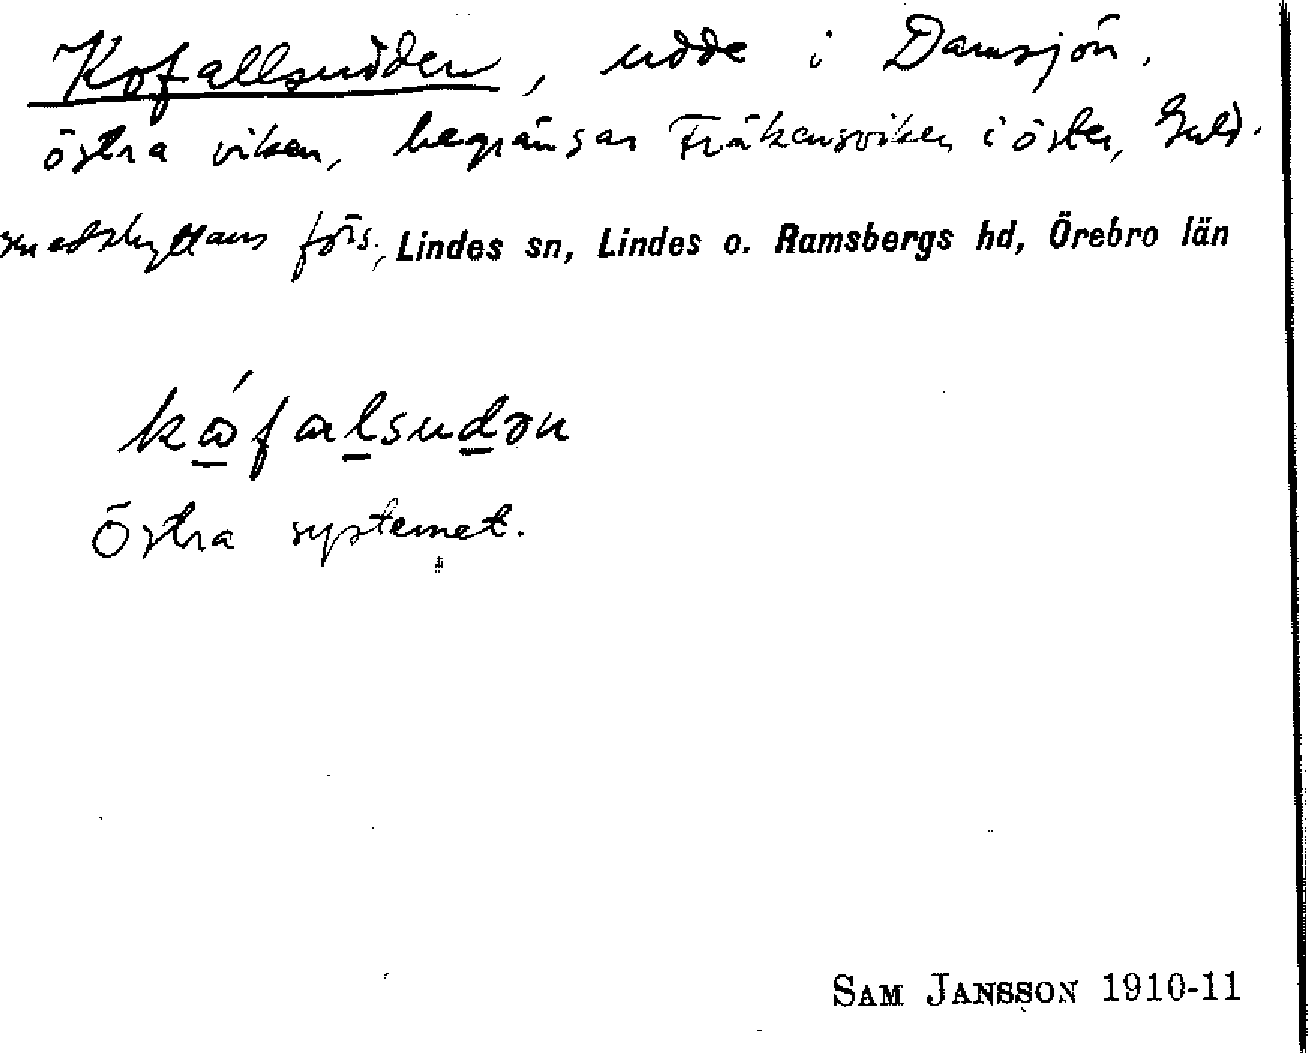 Kofallsudden, udde i Damsjön,
östra viken, begränsar Fräkensviken i öster, Guld-
smedshyttans förs., Lindes sn, Lindes o. Ramsbergs hd, Örebro län
kófalsudən
Östra systemet.
SAM JANSSON 1910-11